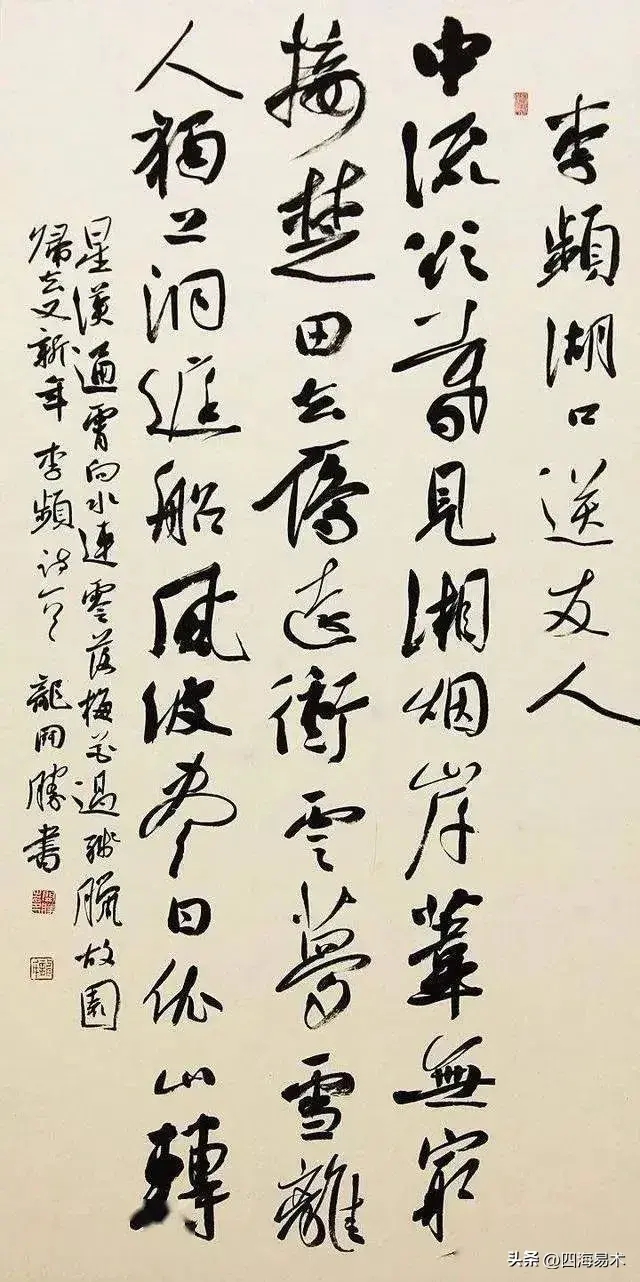 李頻湖口送友人
中流欲暮見湘烟岸葦無窮
接楚田去鴈遠衝雲夢雪離
人獨上洞庭船風波盡日依山轉
星漢通霄向水連零落梅花過殘臘故園
歸去又新年 李頻詩一首 龍開勝書
头条 @四海易木